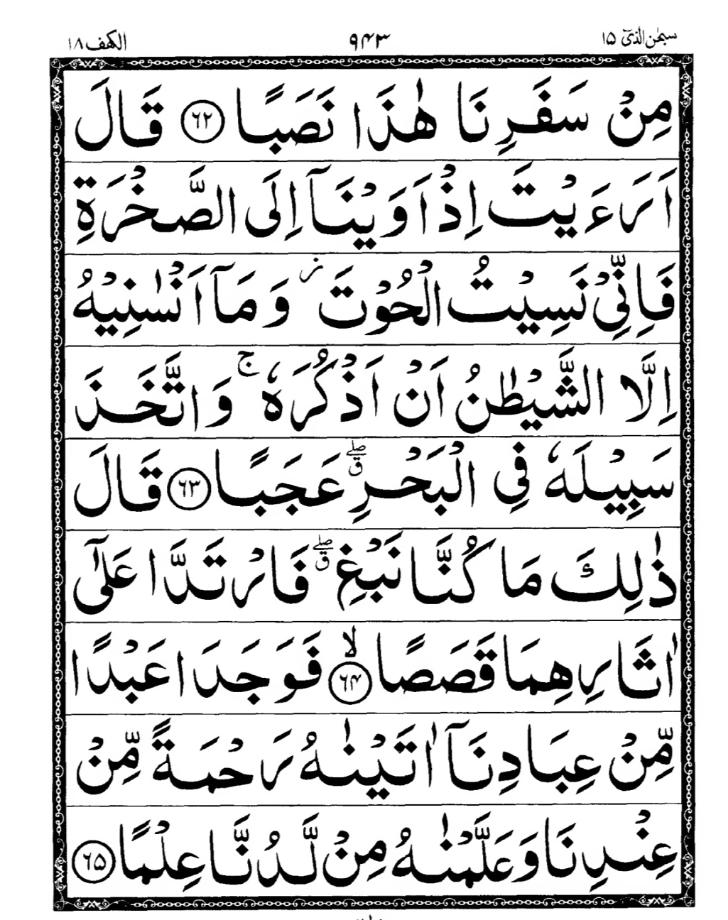 سبحٰن الذیٓ ١٥ ٩٤٣ الکهف ١٨
مِنۡ سَفَرِنَا هٰذَا نَصَبًا ﴿٦٢﴾ قَالَ
اَرَءَيۡتَ اِذۡ اَوَيۡنَاۤ اِلَى الصَّخۡرَةِ
فَاِنِّىۡ نَسِيۡتُ الۡحُوۡتَ ز وَمَاۤ اَنۡسٰنِيۡهُ
اِلَّا الشَّيۡطٰنُ اَنۡ اَذۡكُرَهٗ ۚ وَاتَّخَذَ
سَبِيۡلَهٗ فِى الۡبَحۡرِ ۖق عَجَبًا ﴿٦٣﴾ قَالَ
ذٰلِكَ مَا كُنَّا نَبۡغِ ۖق فَارۡتَدَّا عَلٰٓى
اٰثَارِهِمَا قَصَصًا ۙ﴿٦٤﴾ فَوَجَدَا عَبۡدًا
مِّنۡ عِبَادِنَاۤ اٰتَيۡنٰهُ رَحۡمَةً مِّنۡ
عِنۡدِنَا وَعَلَّمۡنٰهُ مِنۡ لَّدُنَّا عِلۡمًا ﴿٦٥﴾